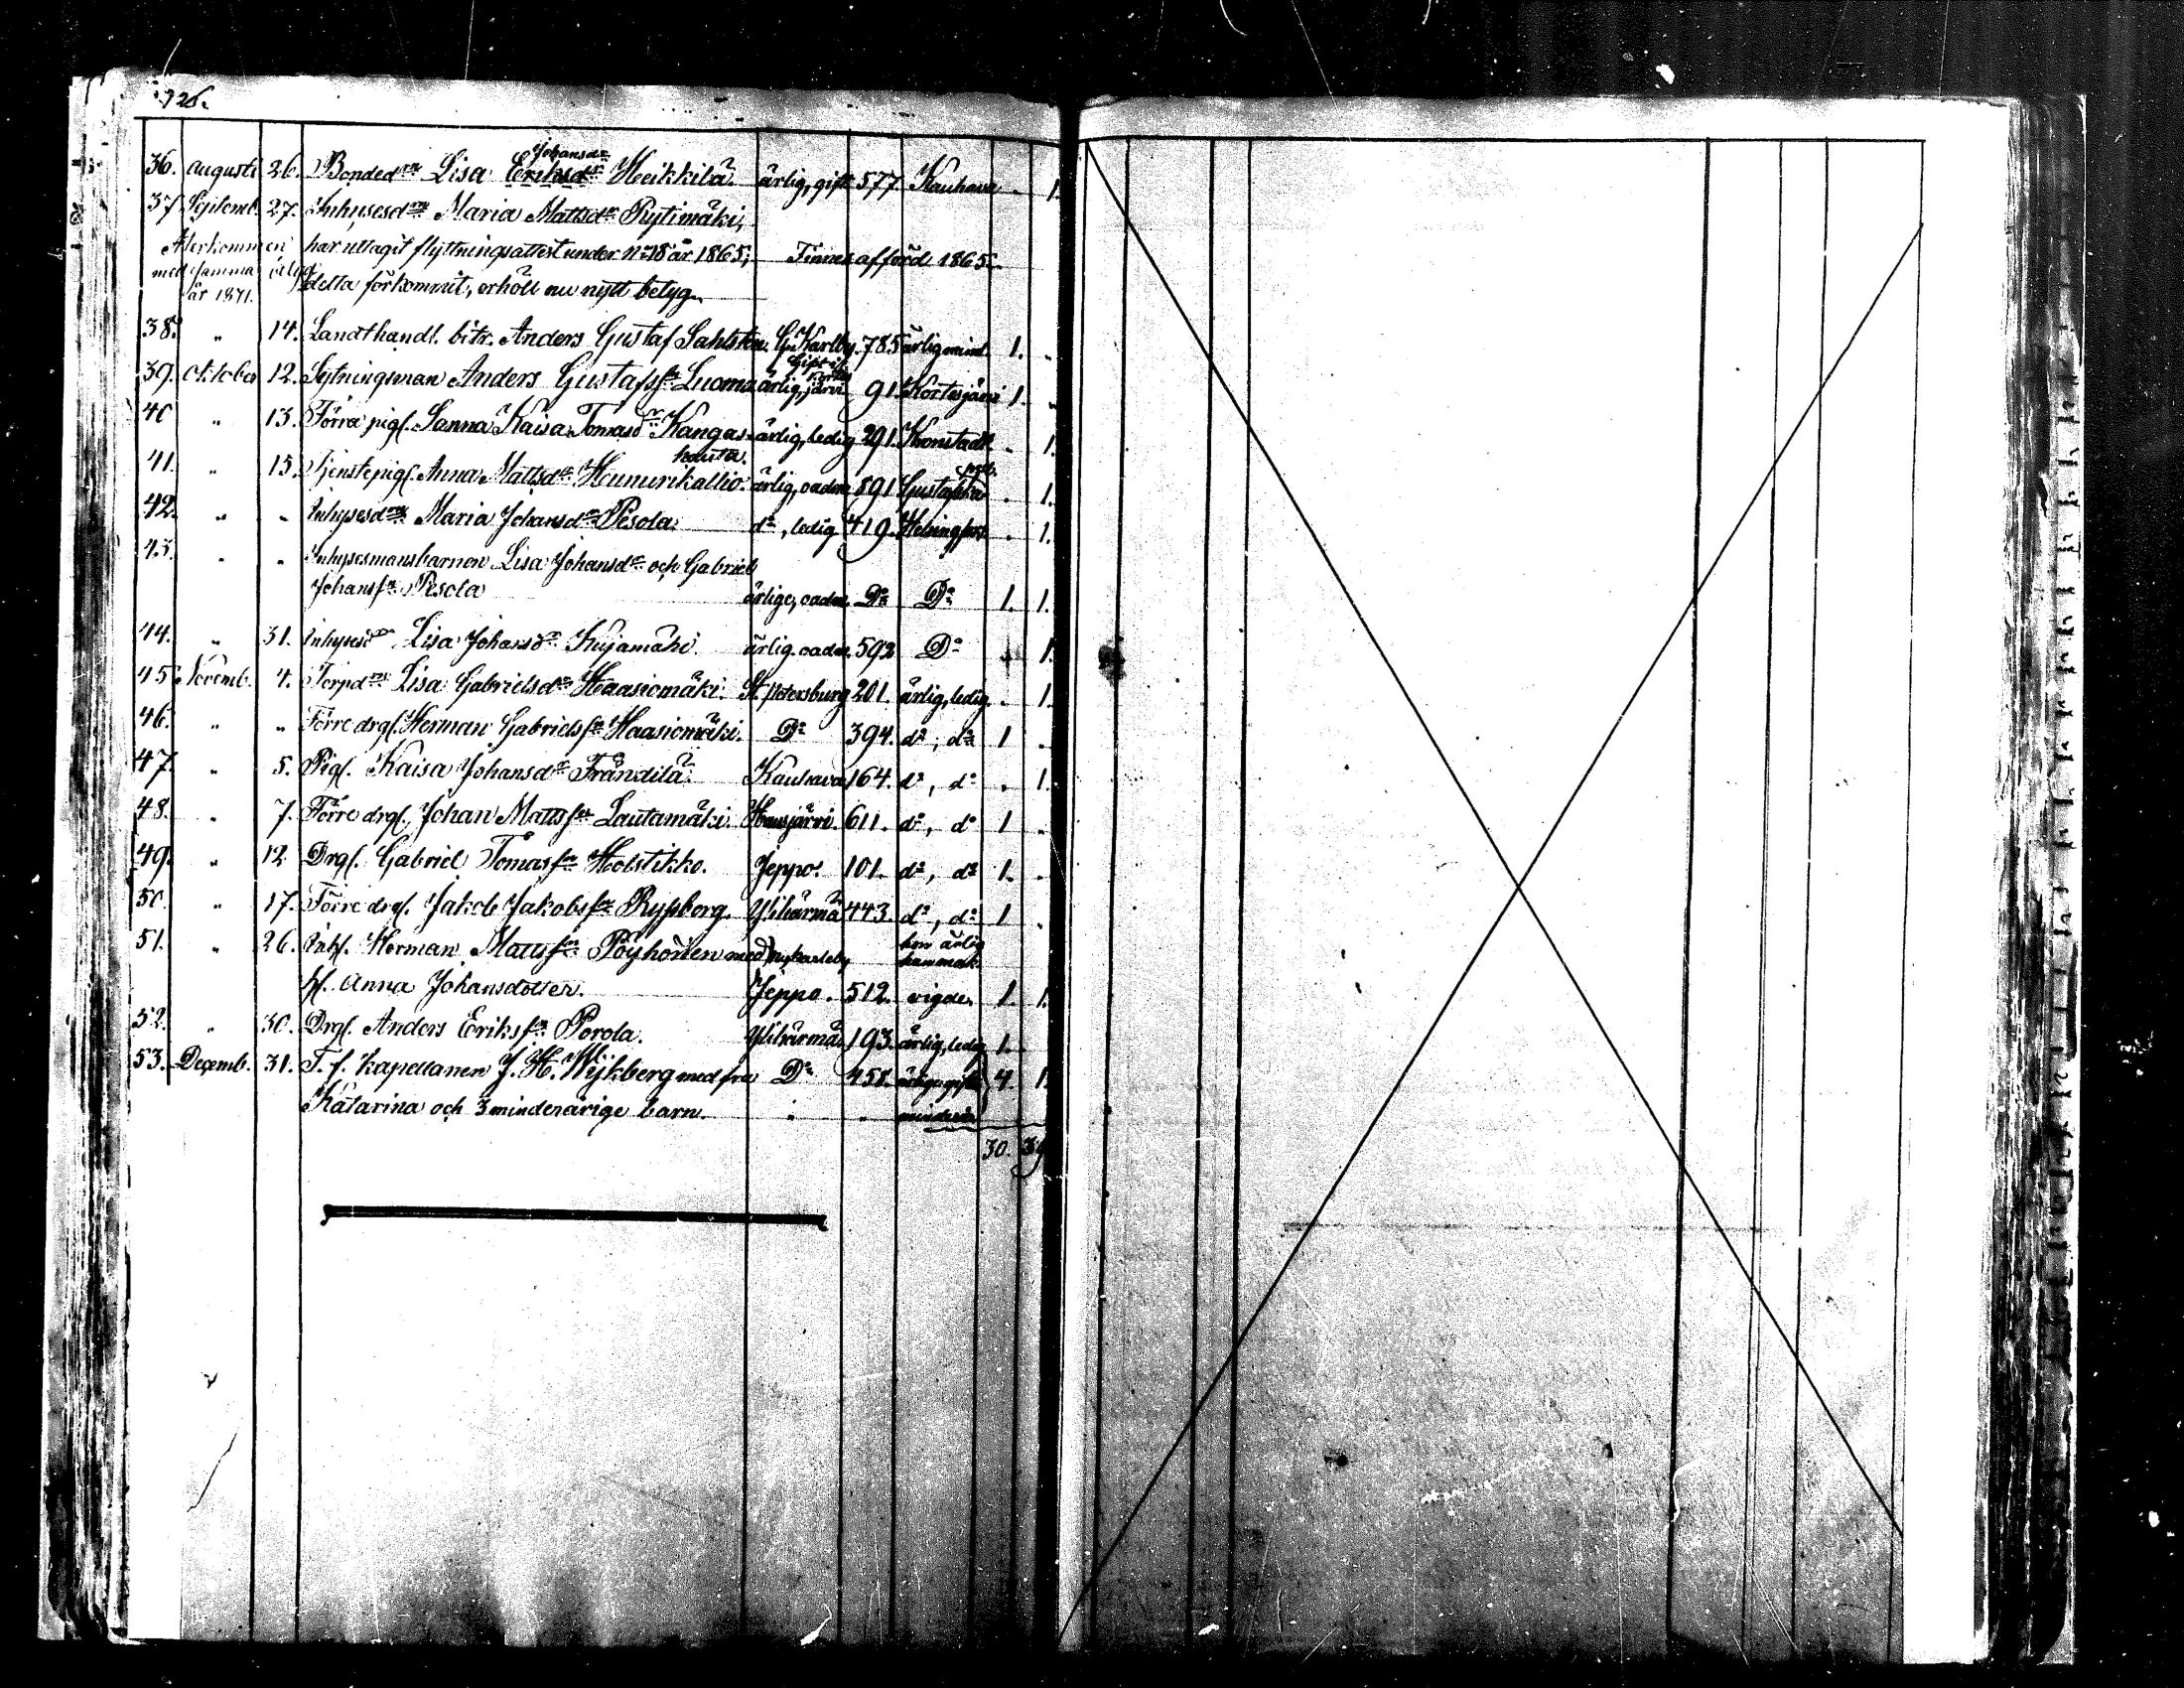 326.
36. augusti 26. Bonded:rn Lisa Eriksd:r Johansd:r Heikkilä. ärlig, gift 577. Kauhava . 1.
37. Septemb. 27. Inhysesd:rn Maria Mattsd:r Rytimäki,
Återkommen har uttagit flyttningsattest under N:o 18 år 1865; Finnes afförd 1865.
med samma betyg detta förkommit, erhöll nu nytt betyg.
år 1871.
38. " 14. Landthandl. bitr. Anders Gustaf Sahlsten. G. Karlby. 785 ärlig mind. 1. .
39. oktober 12. Sytningsman Anders Gustafss:n Luoma ärlig, Gift i Kortesjärvi 91. Kortesjärvi 1. "
40 " 13. Förra pig. Sanna Kaisa Tomasd:r Kangas- ärlig, ledig 291. Kronstadt . 1.
hauta.
41. " 15. Tjenstepig. Anna Mattsd:r Hunurikallio. ärlig, oadm. 891 Gustafs . 1.
42. " " Inhysesd:rn Maria Johansd:r Pesola. d:o, ledig 419. Helsingfors . 1.
43. " " Inhysesmansbarnen Lisa Johansd:r och Gabriel
Johanss:n Pesola ärlige, oadm. D:o D:o 1. 1.
44. " 31. Inhysesd:r Lisa Johansd:r Kujamäki ärlig. oadm. 592 D:o 1.
45. Novemb. 4. Torpd:rn Lisa Gabrielsd:r Haasiomäki. St. Petersburg 201. ärlig, ledig. . 1.
46. " " Förre drg. Herman Gabrielss:n Haasiomäki. D:o 394. d:o, d:o 1 .
47. " 5. Pig. Kaisa Johansd:r Frändilä. Kauhava 164. d:o, d:o . 1.
48. " 7. Förre drg. Johan Mattss:n Lautamäki. Hausjärvi. 611. d:o, d:o 1 "
49. " 12. Drg. Gabriel Tomass:n Holstikko. Jeppo. 101. d:o, d:o 1. .
50. " 17. Förre drg. Jakob Jakobss:n Rypberg. Ylihärmä 443. d:o, d:o 1 .
51. " 26. Inh. Herman Mattss:n Pöyhönen med Nykarleby hon ärlig
h. Anna Johansdotter. Jeppo. 512. vigde. 1. 1.
52. " 30. Drg. Anders Erikss:n Porola. Ylihärmä 193. ärlig, ledig 1.
53. Decemb. 31. T. f. kapellanen J. H. Wijkberg med fru D:o 458. ärlige, gifte 4. 1
Katarina och 3 minderårige barn. " " minderår.
30. 39